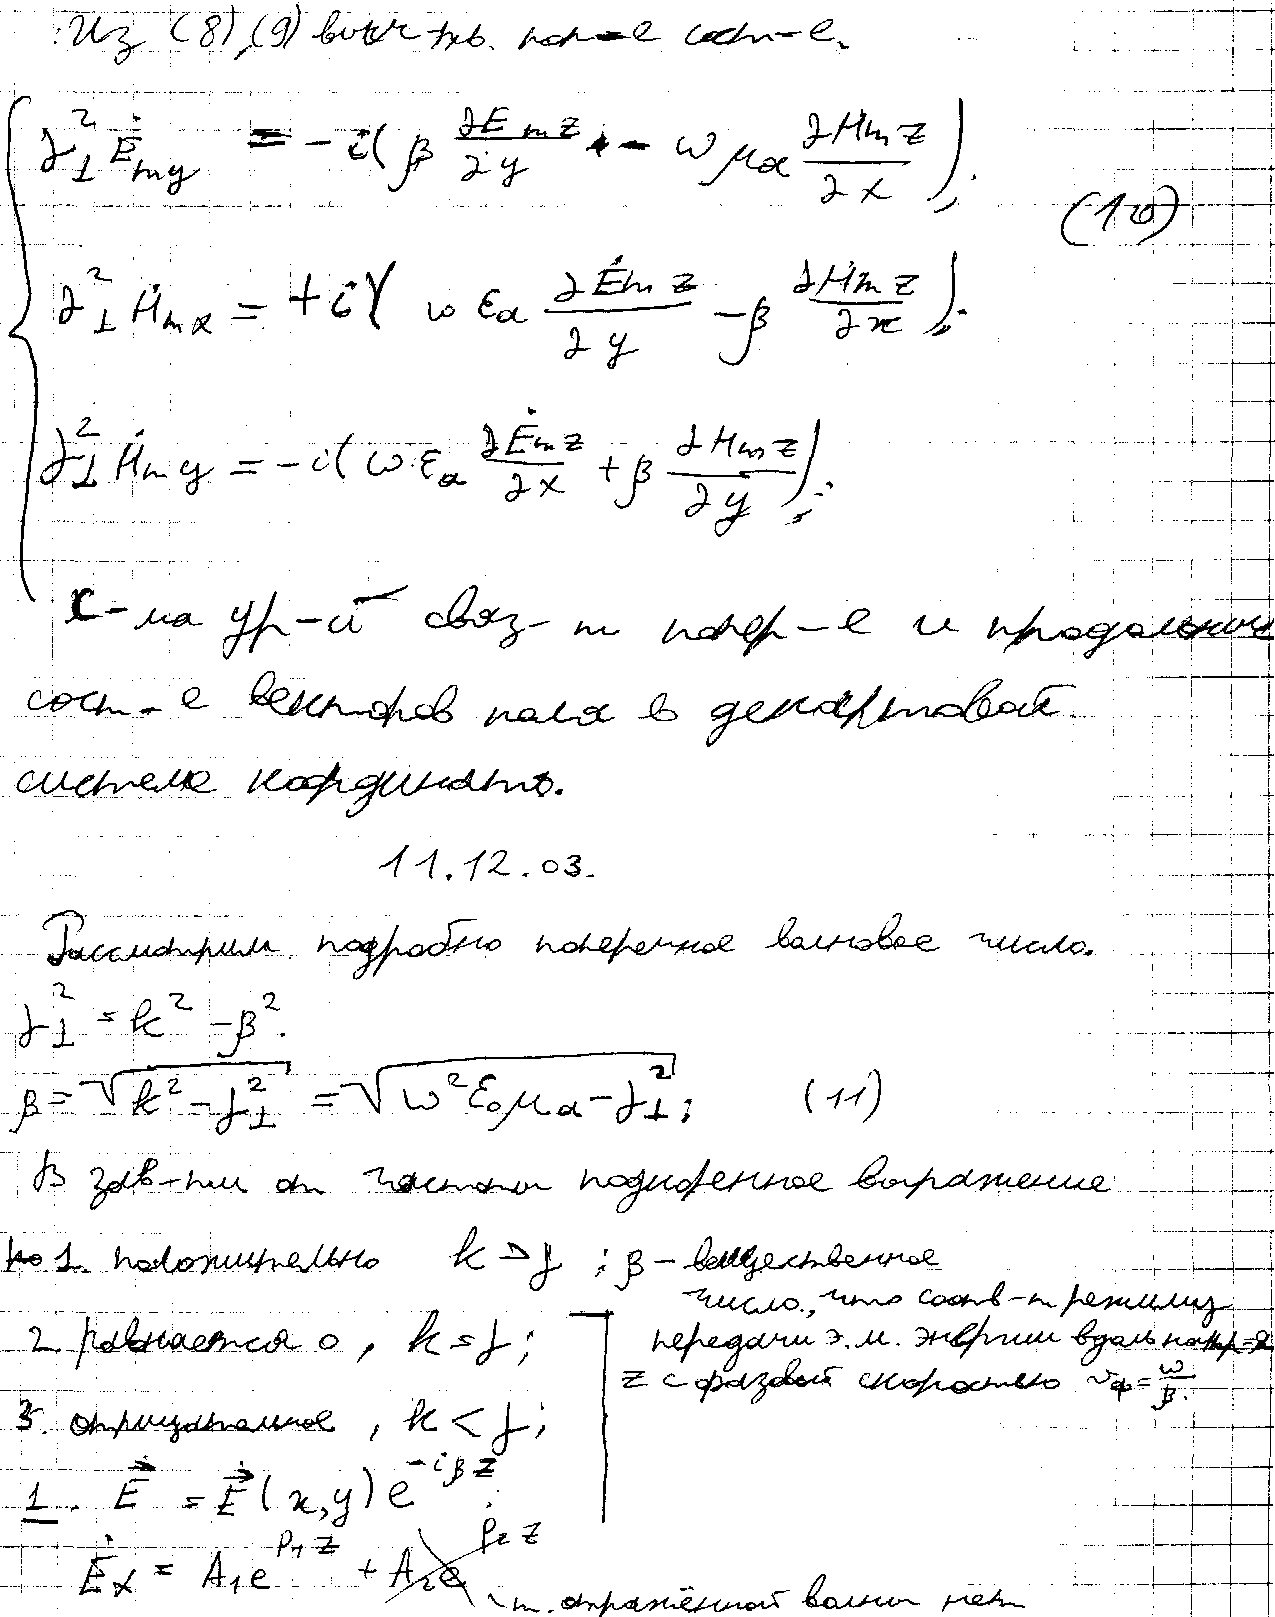 Из (8), (9) поп-е сост-е.
γ⊥² Ėmy = -i(β ∂Emz/∂y - ωμa ∂Hmz/∂x);
(10)
γ⊥² Ḣmx = +i(ωεa ∂Ėmz/∂y - β ∂Ḣmz/∂x);
γ⊥² Ḣmy = -i(ωεa ∂Ėmz/∂x + β ∂Hmz/∂y);
С-ма ур-й связ-т попер-е и продольные
сост-е векторов поля в декартовой
системе координат.
11.12.03.
Рассмотрим подробно поперечное волновое число.
γ⊥² = k² - β².
β = √(k² - γ⊥²) = √(ω²εaμa - γ⊥²); (11)
В зав-ти от частоты подкоренное выражение
1. положительно k > γ; β - вещественное
число, что соотв-т режиму
2. равняется 0, k = γ;
передачи э.м. энергии вдоль напр-я
z с фазовой скоростью vф = ω/β.
3. отрицательное, k < γ;
1. E⃗ = E⃗(x,y)e^(-iβz);
Ėx = A₁e^(p₁z) + A₂e^(p₂z)
т. отражённой волны нет